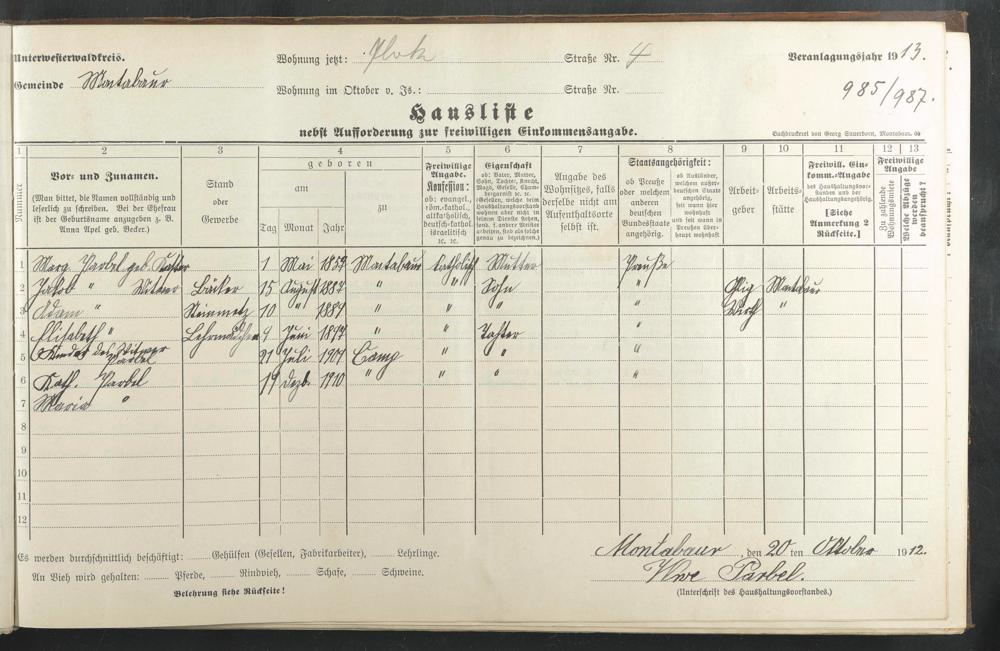 Unterwesterwaldkreis.
Gemeinde Montabaur
Wohnung jetzt: Straße Nr. 4
Wohnung im Oktober v. Js.: Straße Nr.
Veranlagungsjahr 1913.
985/987.
Hausliste
nebst Aufforderung zur freiwilligen Einkommensangabe.
Buchdruckerei von Georg Sauerborn, Montabaur.
1 2 3 4 5 6 7 8 9 10 11 12 13
Nummer
Vor- und Zunamen.
(Man bittet, die Namen vollständig und
leserlich zu schreiben. Bei der Ehefrau
ist der Geburtsname anzugeben z. B.
Anna Apel geb. Becker.)
Stand
oder
Gewerbe
geboren
am
Tag Monat Jahr
zu
Freiwillige
Angabe.
Konfession:
ob: evangel.,
röm.-kathol.,
altkatholisch,
deutsch-kathol.
israelitisch
ec. ec.
Eigenschaft
ob: Vater, Mutter,
Sohn, Tochter, Knecht,
Magd, Geselle, Cham-
bergarnist ec. ec.
Angabe des
Wohnsitzes, falls
derselbe nicht am
Aufenthaltsorte
selbst ist.
Staatsangehörigkeit:
ob Preuße
oder welchem
anderen
deutschen
Bundesstaate
angehörig.
ob Ausländer,
welchem außer-
deutschen Staate
angehörig,
seit wann hier
wohnhaft
und seit wann in
Preußen über-
haupt wohnhaft
Arbeit-
geber
Arbeits-
stätte
Freiwill. Ein-
komm.-Angabe
des Haushaltungsvor-
standes und der
Haushaltungsangehörig.
[Siehe
Anmerkung 2
Rückseite.]
Freiwillige
Angabe
Zu zahlende
Wohnungsmiete
Welche Abzüge
werden
beansprucht?
1 Marg. Parbel geb. 1 Mai 1857 Montabaur Katholisch Mutter Preuße
2 Jakob " Witwer Bäcker 15 August 1882 " " Sohn " Montabaur
3 Adam " Steinmetz 10 " 1889 " " " " Wirth "
4 Elisabeth " 9 Juni 1894 " " Tochter "
5 Kinder des Witwer
Parbel 21 Juli 1909 Camp " " "
6 Kath. Parbel 19 Dezb. 1910 " " " "
7 Maria "
8
9
10
11
12
Es werden durchschnittlich beschäftigt: Gehülfen (Gesellen, Fabrikarbeiter), Lehrlinge.
An Vieh wird gehalten: Pferde, Rindvieh, Schafe, Schweine.
Belehrung siehe Rückseite!
Montabaur, den 20 ten Oktober 1912.
Wwe Parbel.
(Unterschrift des Haushaltungsvorstandes.)